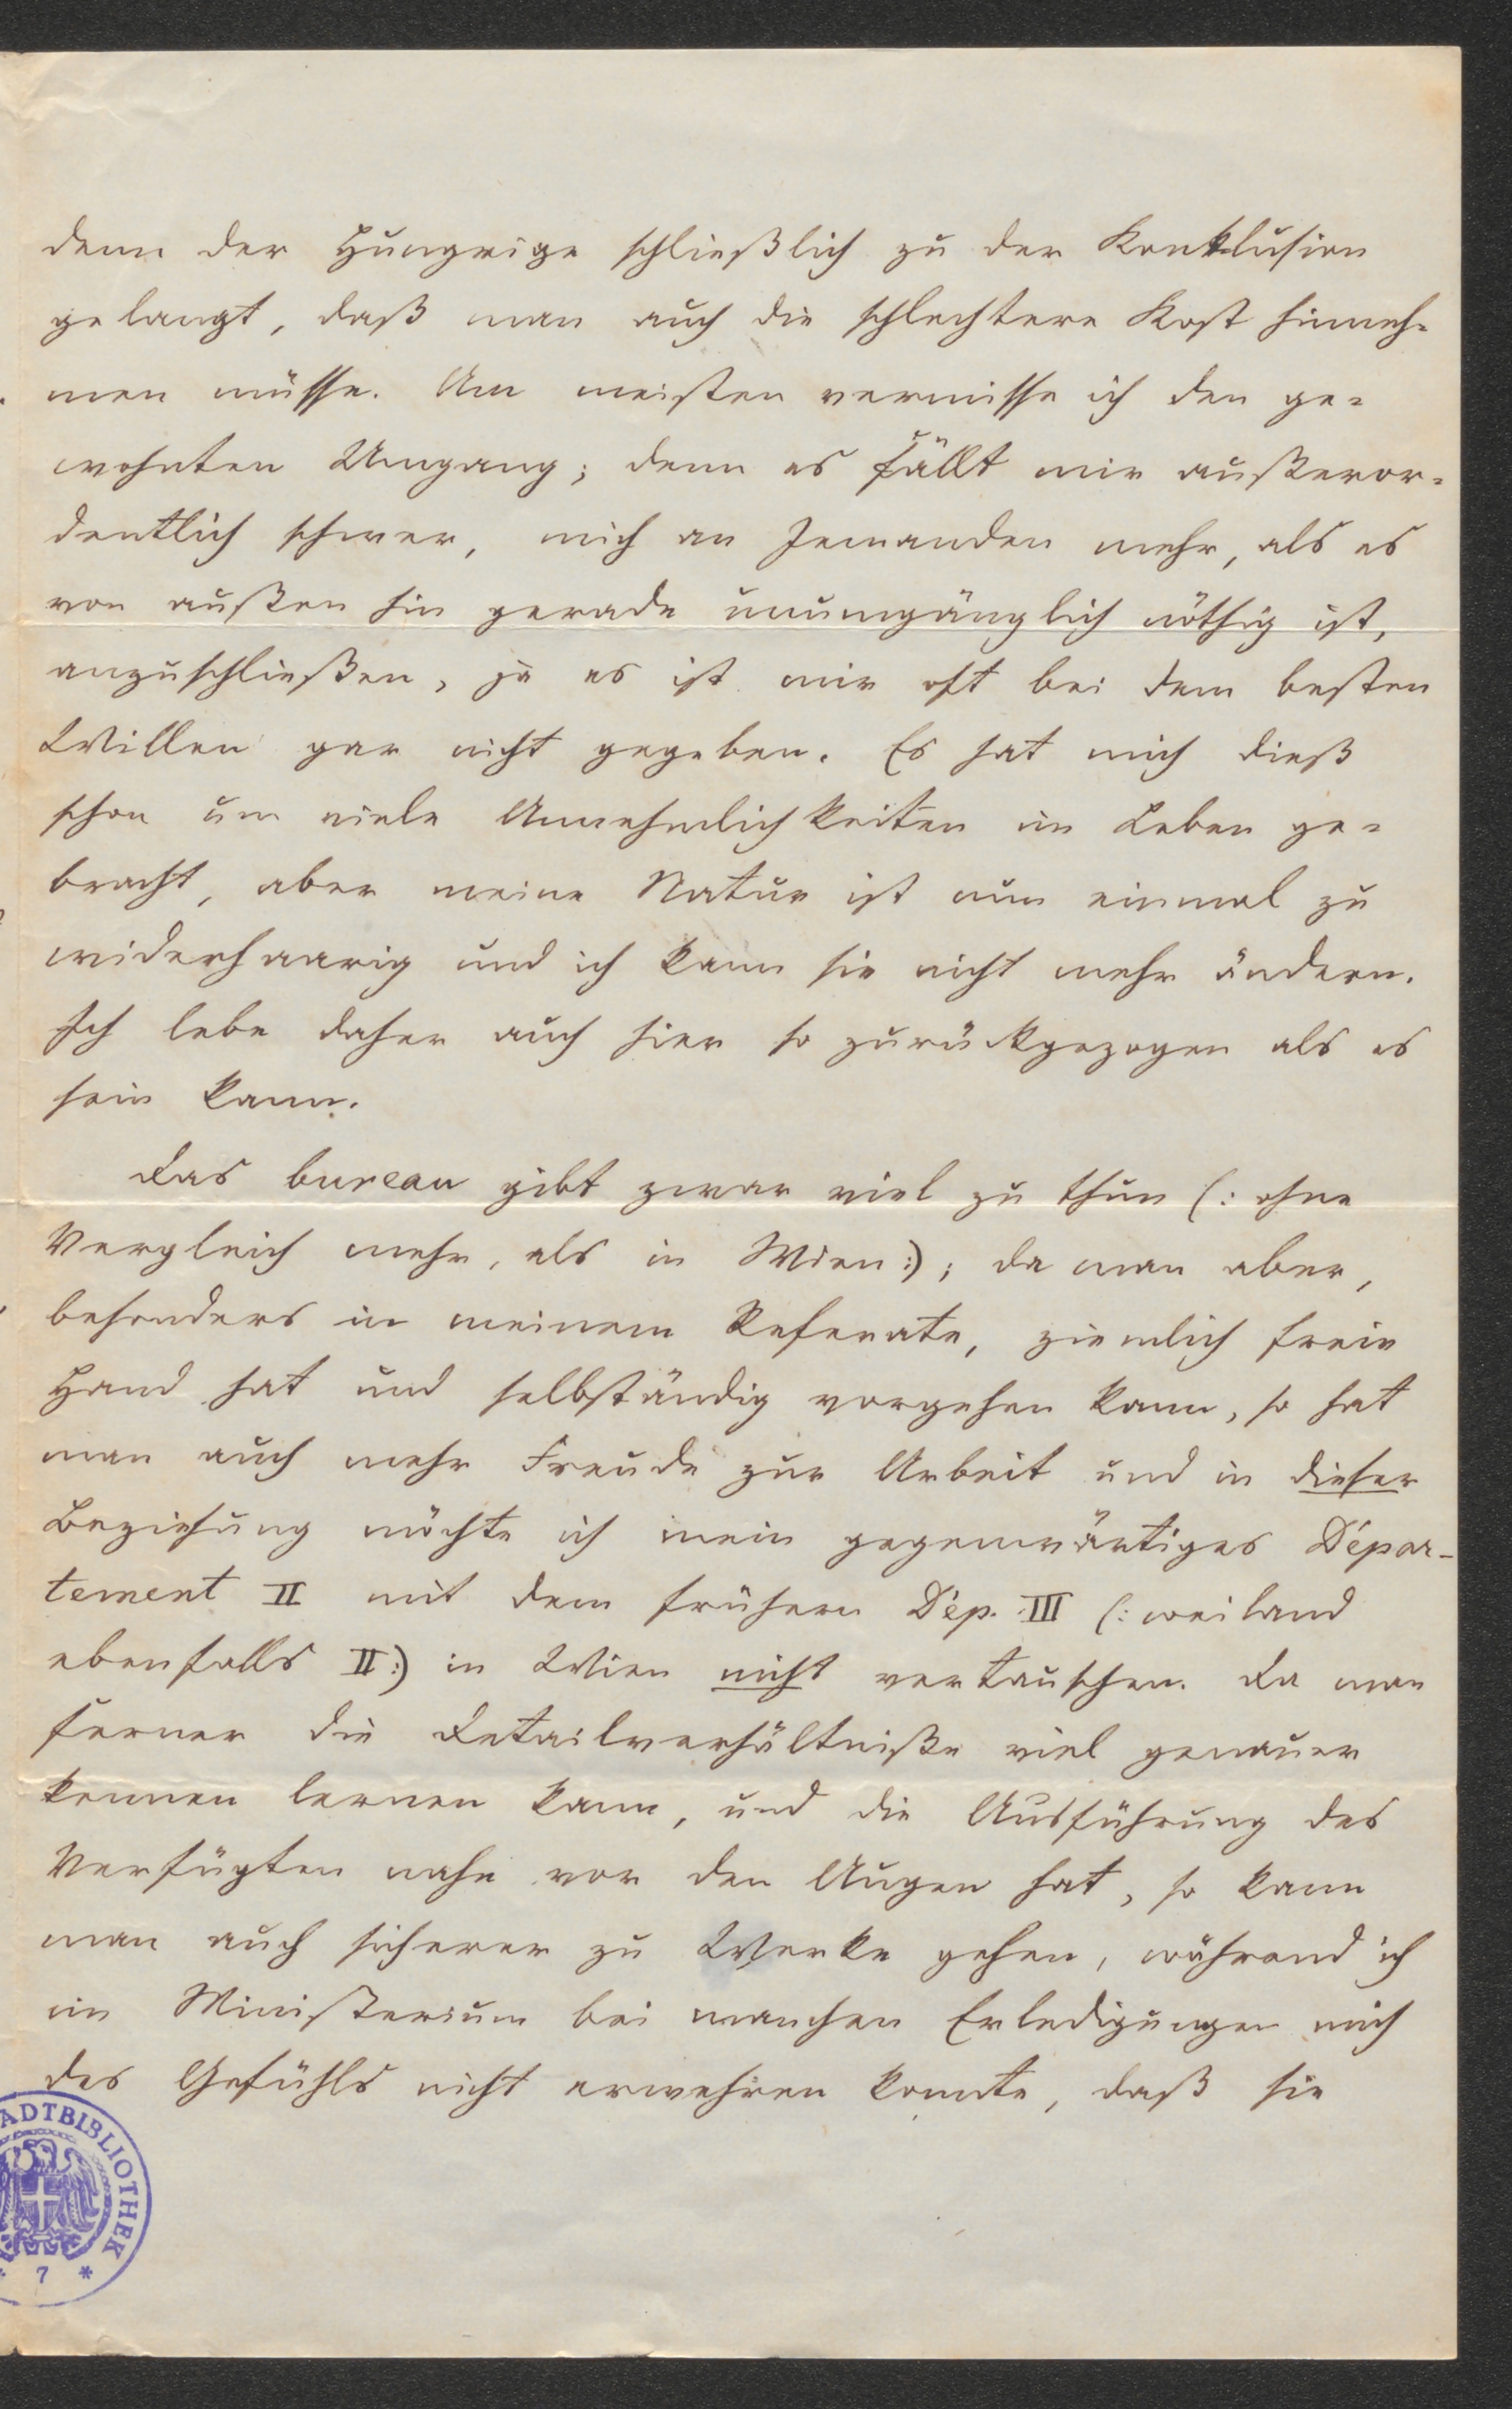 denn der Hungrige schließlich zu der Konklusion
gelangt, daß man auch die schlechtere Kost hinneh-
men müsse. Am meisten vermisse ich den ge-
wohnten Umgang; denn es fällt mir außeror-
dentlich schwer, mich an Jemanden mehr, als es
von außen hin gerade unumgänglich nöthig ist,
anzuschließen, ja es ist mir oft bei dem besten
Willen gar nicht gegeben. Es hat mich dieß
schon um viele Annehmlichkeiten im Leben ge-
bracht, aber meine Natur ist nun einmal zu
widerhaarig und ich kann sie nicht mehr ändern.
Ich lebe daher auch hier so zurückgezogen als es
sein kann.
Das bureau gibt zwar viel zu thun (: ohne
Vergleich mehr, als in Wien :); da man aber,
besonders in meinem Referate, ziemlich freie
Hand hat und selbständig vorgehen kann, so hat
man auch mehr Freude zur Arbeit und in dieser
Beziehung möchte ich mein gegenwärtiges Dépar-
tement II mit dem frühern Dép. III (: weiland
ebenfalls II :) in Wien nicht vertauschen. Da man
ferner die Detailverhältniße viel genauer
kennen lernen kann, und die Ausführung des
Verfügten nahe vor den Augen hat, so kann
man auch sicherer zu Werke gehen, während ich
im Ministerium bei manchen Erledigungen mich
des Gefühls nicht erwehren konnte, daß sie
ADTBIBLIOTHEK
7 *